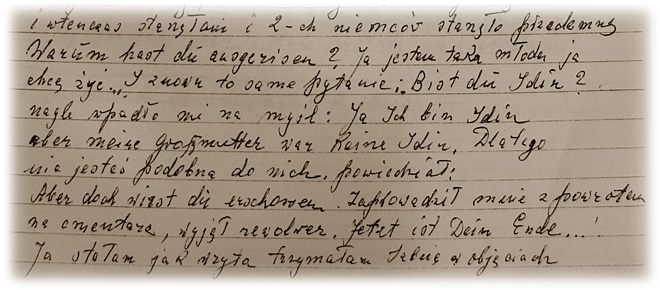 i wtenczas stanęłam i 2-ch niemców stanęło przedemną
Warum hast dú ausgerisen? Ja jestem taka młoda ja
chcę żyć.., I znowu to same pytanie: Bist dú Idin?
nagle wpadło mi na myśl: Ja Ich bin Idin
aber meine Großmutter war Keine Idin, Dlatego
nie jesteś podobna do nich, powiedział:
Aber doch wirst dú erschossen. Zaprowadził mnie z powrotem
na cmentarz, wyjął rewolwer. Jetzt ist Dein Ende...!
Ja stałam jak wryta trzymałam w objęciach